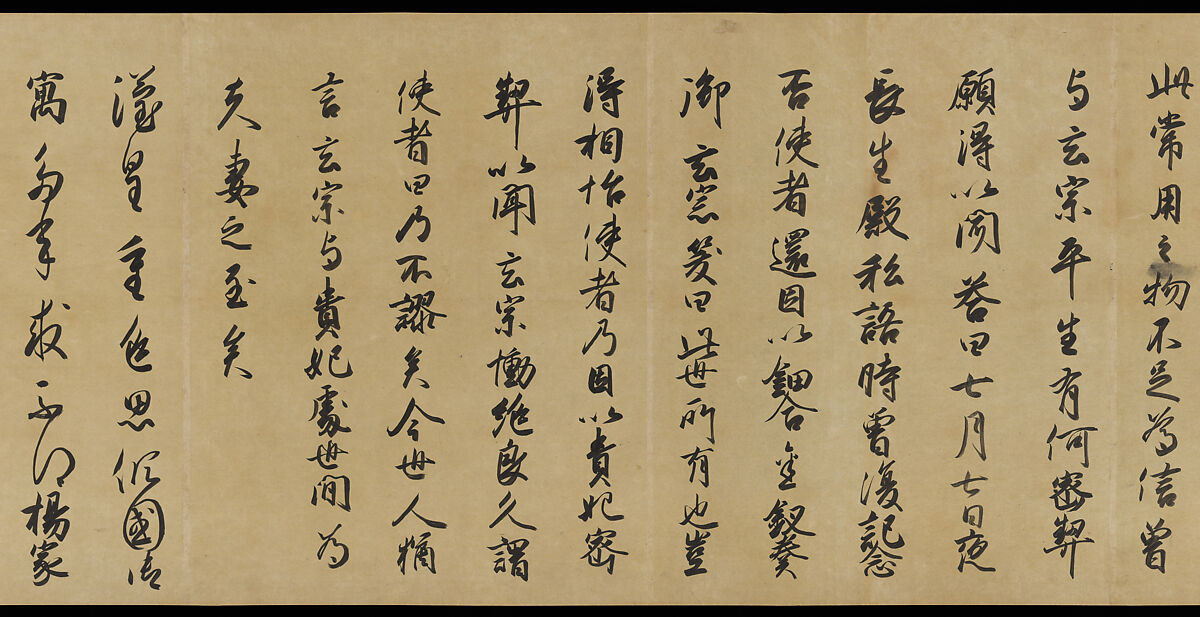 此常用之物不足為信曾
与玄宗平生有何密契
願得以聞答曰七月七日夜
長生殿私語時曾復記念
否使者還因以鈿合金釵奏
御玄宗笑曰此世所有也豈
得相怡使者乃因以貴妃密
契以聞玄宗慟絶良久謂
使者曰乃不謬矣今世人猶
言玄宗与貴妃處世間為
夫妻之至矣
漢皇重色思傾國御
寓多年求不得楊家